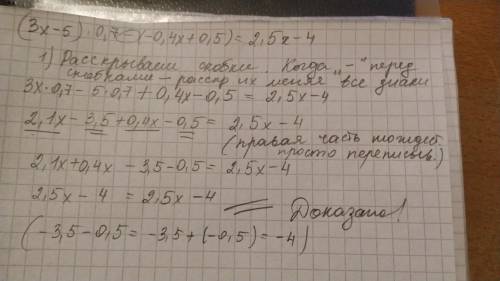 (3x-5)·0,7-(-0,4x+0,5)=2,5x-4
1) Расскрываем скобки. Когда „-" перед
скобками - расскр их меняя все знаки
3x·0,7-5·0,7+0,4x-0,5=2,5x-4
2,1x-3,5+0,4x-0,5=2,5x-4
(правая часть тождест
просто переписыв.)
2,1x+0,4x-3,5-0,5=2,5x-4
2,5x-4=2,5x-4
Доказано!
(-3,5-0,5=-3,5+(-0,5)=-4)